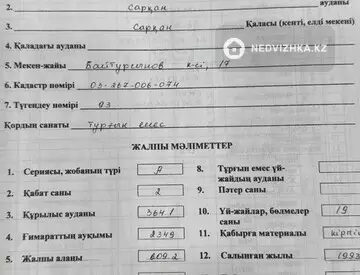 2. Сарқан ауданы
3. Сарқан Қаласы (кенті, елді мекені)
4. Қаладағы ауданы
5. Мекен-жайы Байтурсынов к-сі, 17
6. Кадастр нөмірі 03-267-006-074
7. Түгендеу нөмірі 93
Қордың санаты Тұрғын емес
NEDVIZHKA.KZ
ЖАЛПЫ МӘЛІМЕТТЕР
1. Сериясы, жобаның түрі А
8. Тұрғын емес үй-жайдың ауданы
2. Қабат саны 2
9. Пәтер саны
3. Құрылыс ауданы 364.1
10. Үй-жайлар, бөлмелер саны 19
4. Ғимараттың ауқымы 2349
11. Қабырға материалы кірпі
5. Жалпы алаңы 609.2
12. Салынған жылы 199